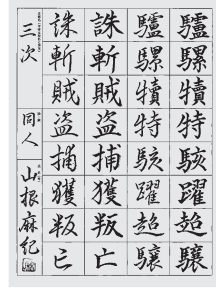 驢騾犢特駭躍超驤
驢騾犢特駭躍超驤
誅斬賊盗捕獲叛亡
誅斬賊盗捕獲叛亡
三次 同人 山根麻紀